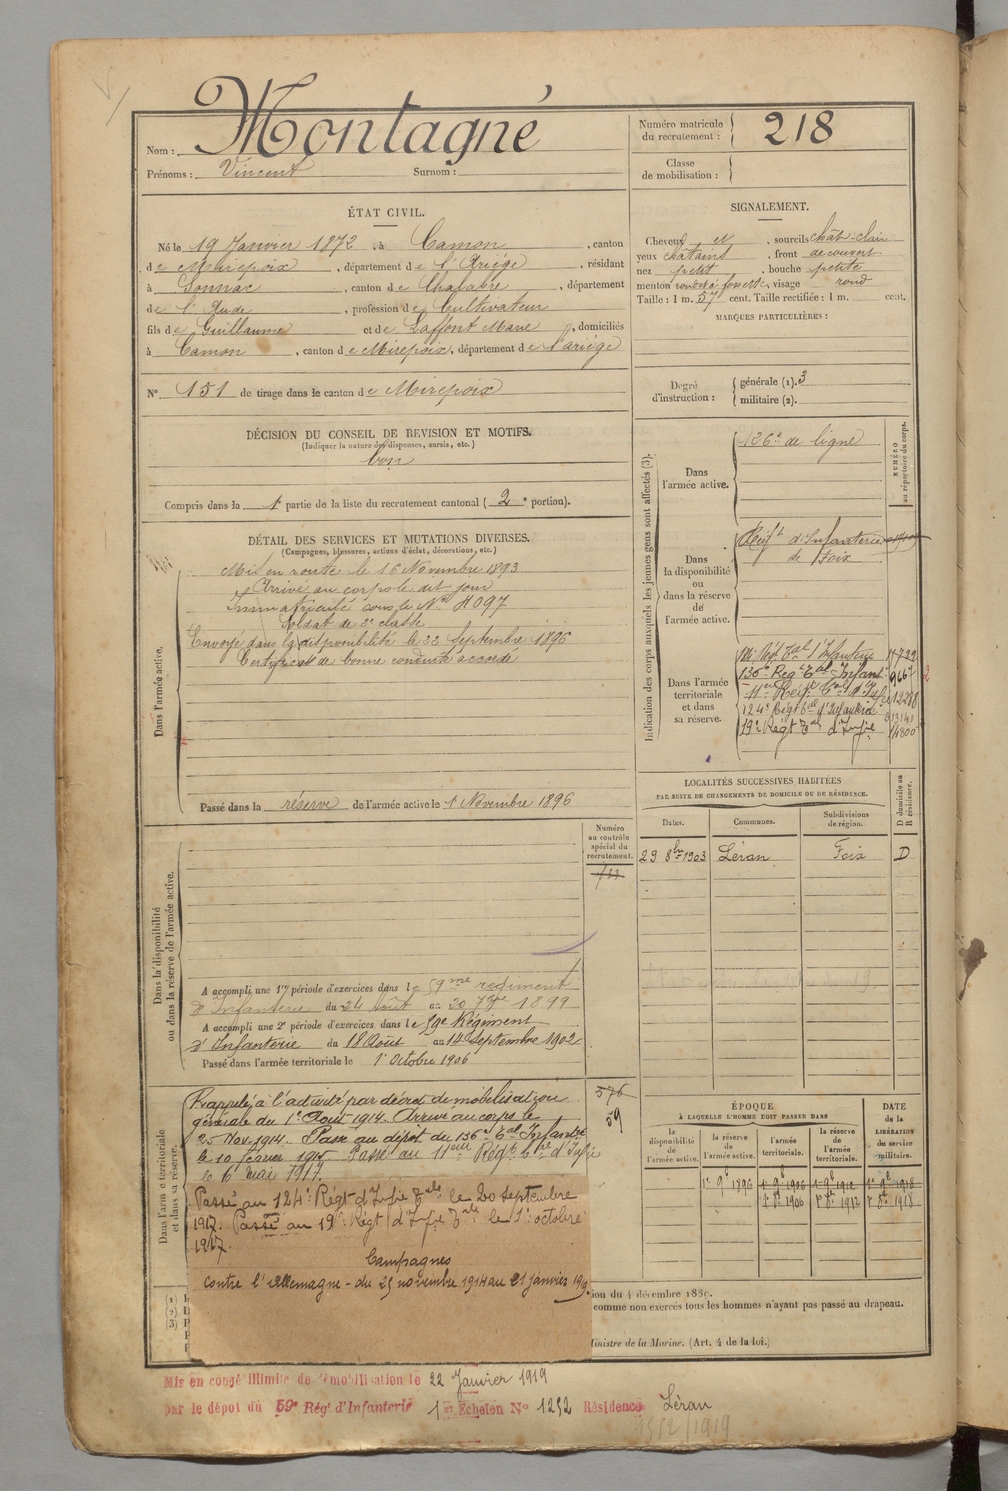 Nom : Montagné
Prénoms : Vincent Surnom :
Numéro matricule du recrutement : 218
Classe de mobilisation :
ÉTAT CIVIL.
Né le 19 Janvier 1872, à Camon, canton
de Mirepoix, département de l'Ariège, résidant
à Sonnac, canton de Chalabre, département
de l'Aude, profession de Cultivateur
fils de Guillaume et de Laffont Marie, domiciliés
à Camon, canton de Mirepoix, département de l'ariège
N° 151 de tirage dans le canton de Mirepoix
SIGNALEMENT.
Cheveux et, sourcils chât-clair
yeux châtains, front découvert
nez petit, bouche petite
menton rond à fossette, visage rond
Taille : 1 m. 57 cent. Taille rectifiée : 1 m. cent.
MARQUES PARTICULIÈRES :
Degré d'instruction : générale (1). 3
militaire (2).
DÉCISION DU CONSEIL DE REVISION ET MOTIFS.
(Indiquer la nature des dispenses, sursis, etc.)
bon
Compris dans la 1e partie de la liste du recrutement cantonal (2e portion).
DÉTAIL DES SERVICES ET MUTATIONS DIVERSES.
(Campagnes, blessures, actions d'éclat, décorations, etc.)
Dans l'armée active.
Mis en route le 16 Novembre 1893
Arrivé au corps le dit jour
Immatriculé sous le N° 4097
Soldat de 2e classe
Envoyé dans la disponibilité le 22 Septembre 1896
Certificat de bonne conduite accordé
Passé dans la réserve de l'armée active le 1 Novembre 1896
Indication des corps auxquels les jeunes gens sont affectés (3).
NUMÉRO au répertoire du corps.
Dans l'armée active.
126e de ligne
Dans la disponibilité ou dans la réserve de l'armée active.
Régt d'Infanterie
de Foix
Dans l'armée territoriale et dans sa réserve.
136e Regt Tal Infant. 9667
11ème Régt Tal d'Infie 12288
124e Régt Tal d'Infanterie 13140
19e Régt Tal d'Infie 14800
LOCALITÉS SUCCESSIVES HABITÉES
PAR SUITE DE CHANGEMENTS DE DOMICILE OU DE RÉSIDENCE.
Dates. Communes. Subdivisions de région. D domicile ou R résidence.
29 8bre 1903 Léran Foix D
Numéro au contrôle spécial du recrutement.
Dans la disponibilité ou dans la réserve de l'armée active.
A accompli une 1re période d'exercices dans le 59me regiment
d'Infanterie du 24 Août au 20 7bre 1899
A accompli une 2e période d'exercices dans le 59e Régiment
d'Infanterie du 18 Août au 14 Septembre 1902
Passé dans l'armée territoriale le 1 Octobre 1906
Dans l'armée territoriale et dans sa réserve.
576
59
Rappelé à l'activité par décret de mobilisation
générale du 1er Août 1914. Arrivé au corps le
25 Nov. 1914. Passé au dépôt du 136e Tal Infantie
le 10 février 1915 Passé au 11ème Régt Tal d'Infie
le 6 mai 1917.
Passé au 124e Régt d'Infie Tale le 20 septembre
1917. Passé au 19e Régt d'Infie Tale le 1er octobre
1917.
Campagnes
contre l'Allemagne - du 25 novembre 1914 au 21 janvier 1919.
ÉPOQUE
À LAQUELLE L'HOMME DOIT PASSER DANS
DATE de la LIBÉRATION du service militaire.
la disponibilité de l'armée active. la réserve de l'armée active. l'armée territoriale. la réserve de l'armée territoriale.
1er 9e 1896 1er 9e 1906 1er 9e 1912 1er 9e 1918
1r 8e 1906 1r 8e 1912 1r 8e 1918
(1)
(2)
(3)
ion du 4 décembre 1889.
comme non exercés tous les hommes n'ayant pas passé au drapeau.
Ministre de la Marine. (Art. 4 de la loi.)
Mis en congé illimité de démobilisation le 22 Janvier 1919
par le dépot du 59e Régt d'Infanterie 1er Echelon N° 1252 Résidence Léran